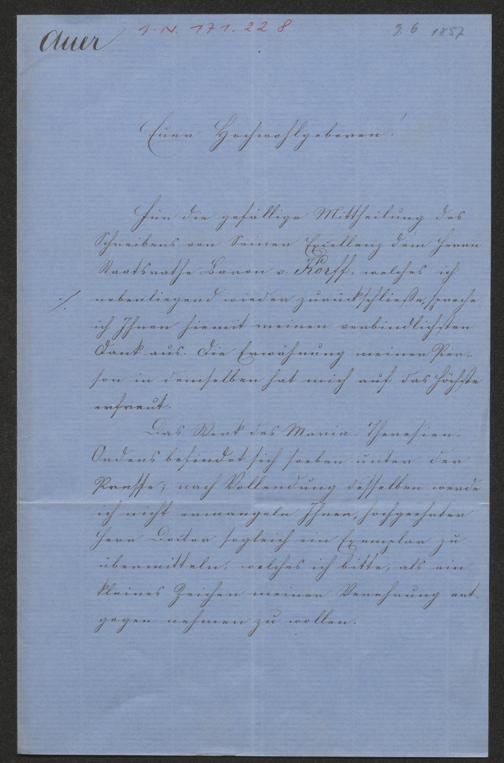 Auer
I.N. 171.228
9.6 1857
Euer Hochwohlgeboren!
Für die gefällige Mittheilung des
Schreibens von Seiner Excellenz dem Herrn
Staatsrathe Baron v. Korff, welches ich
nebenliegend wieder zurückschließe, spreche
ich Ihnen hiemit meinen verbindlichsten
Dank aus. Die Erwähnung meiner Per-
son in demselben hat mich auf das Höchste
erfreut.
Das Werk des Maria-Theresien-
Ordens befindet sich soeben unter der
Presse; nach Vollendung desselben werde
ich nicht ermangeln Ihnen, hochgeehrter
Herr Doctor sogleich ein Exemplar zu
übermitteln, welches ich bitte, als ein
kleines Zeichen meiner Verehrung ent-
gegen nehmen zu wollen.